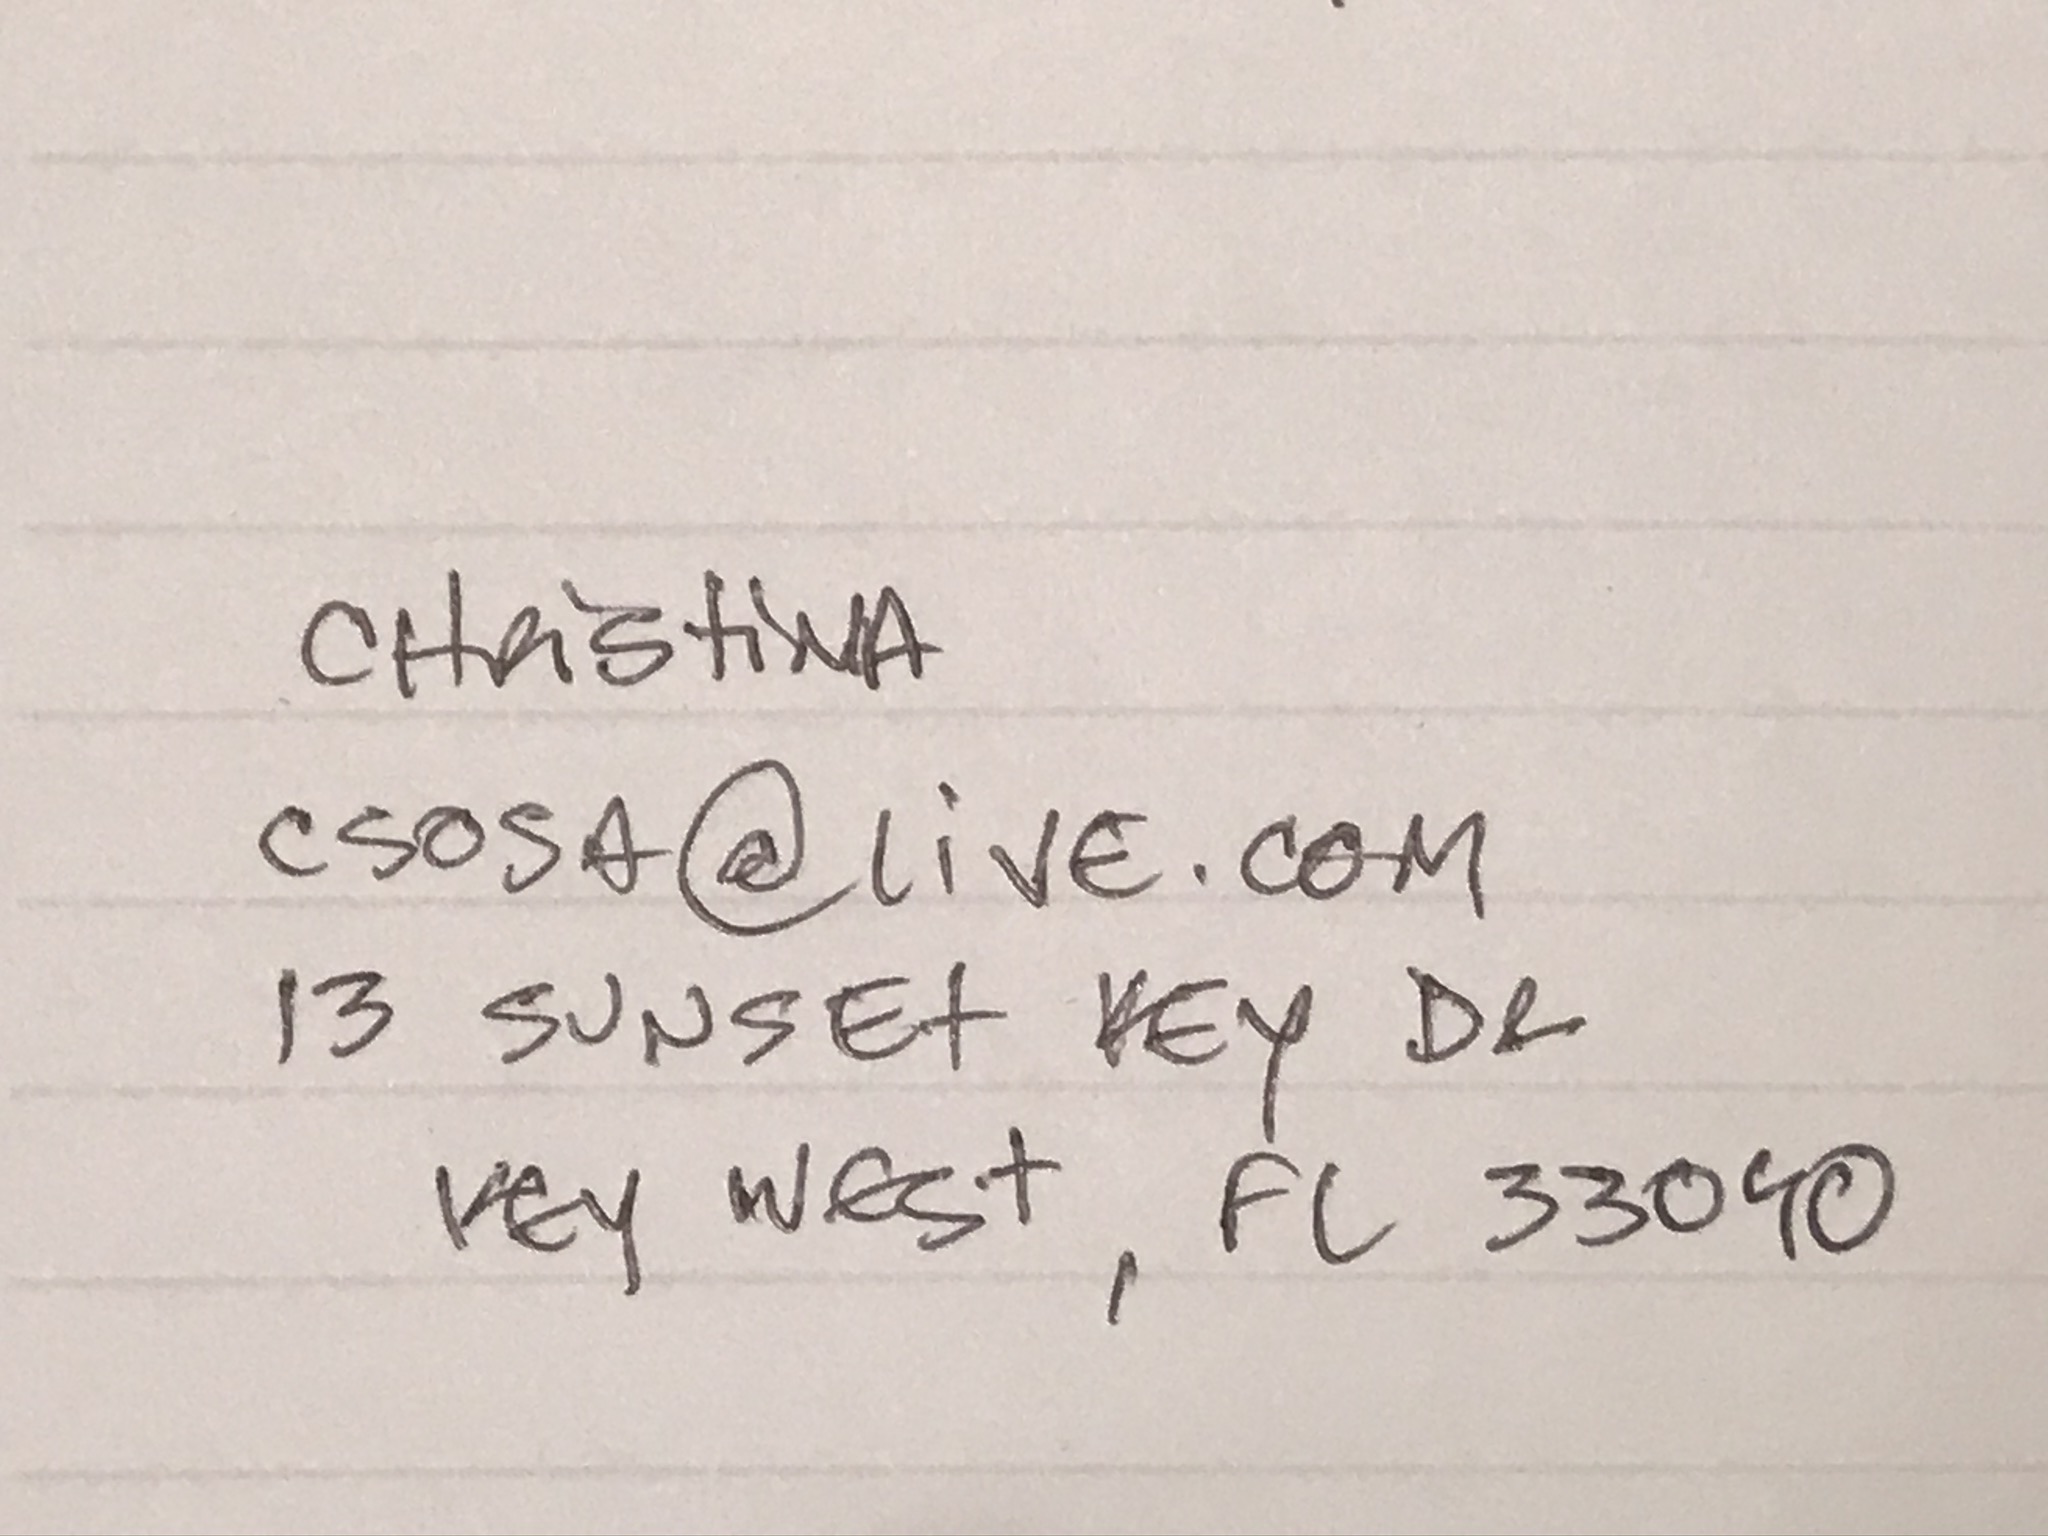 CHRiStiNA
CSOSA@LiVE.COM
13 SUNSEt KEY DR
KEY WESt, FL 33040